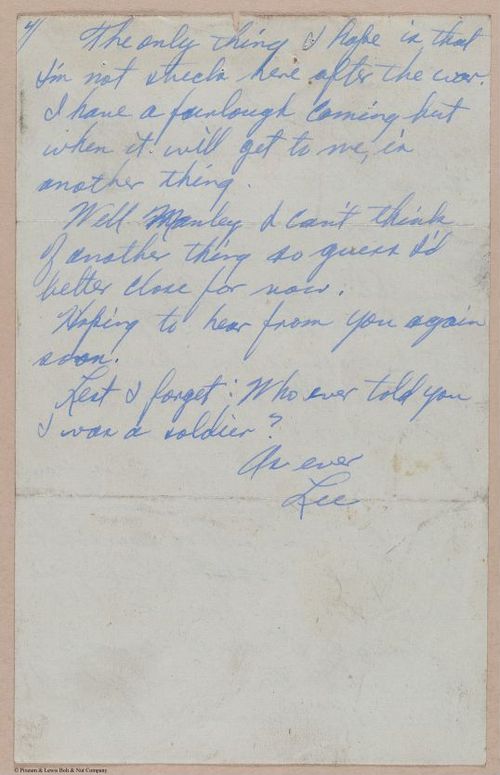 4/
The only thing I hope is that
I'm not stuck here after the war.
I have a furlough coming but
when it will get to me, is
another thing.
Well Manley I can't think
of another thing so guess I'd
better close for now.
Hoping to hear from you again
soon.
Lest I forget: Who ever told you
I was a soldier?
As ever
Lee
© Pinzien & Lewis Bolt & Nut Company